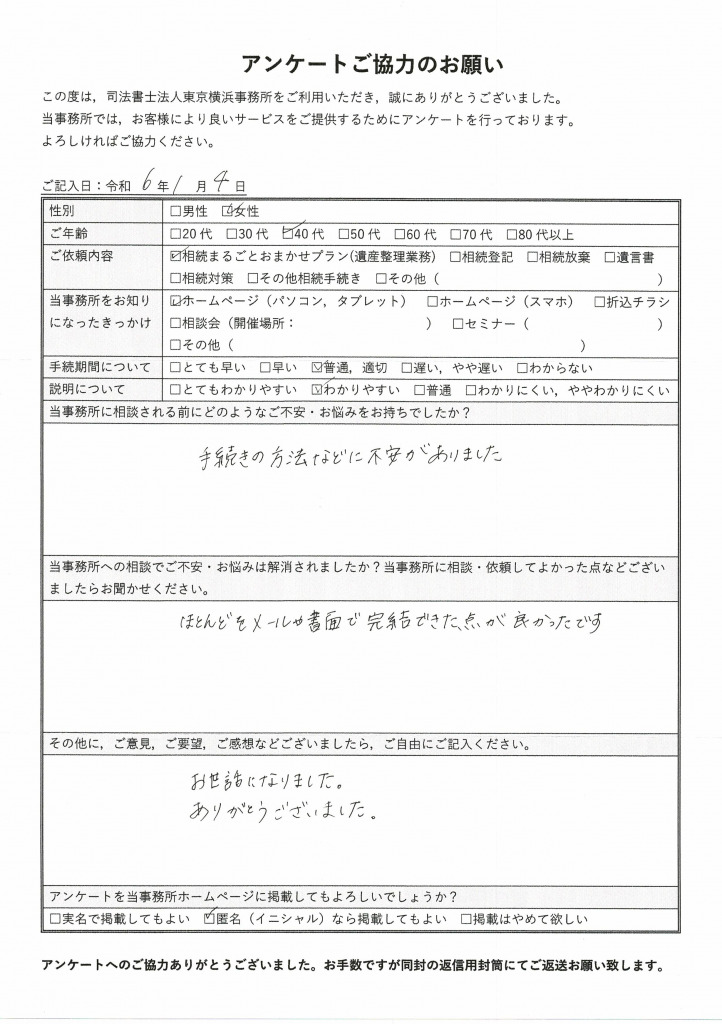 アンケートご協力のお願い
この度は，司法書士法人東京横浜事務所をご利用いただき，誠にありがとうございました。
当事務所では，お客様により良いサービスをご提供するためにアンケートを行っております。
よろしければご協力ください。
ご記入日：令和 6 年 1 月 4 日
性別 □男性 ☑女性
ご年齢 □20代 □30代 ☑40代 □50代 □60代 □70代 □80代以上
ご依頼内容 ☑相続まるごとおまかせプラン(遺産整理業務) □相続登記 □相続放棄 □遺言書
□相続対策 □その他相続手続き □その他（ ）
当事務所をお知り ☑ホームページ（パソコン，タブレット） □ホームページ（スマホ） □折込チラシ
になったきっかけ □相談会（開催場所： ） □セミナー（ ）
□その他（ ）
手続期間について □とても早い □早い ☑普通，適切 □遅い，やや遅い □わからない
説明について □とてもわかりやすい ☑わかりやすい □普通 □わかりにくい，ややわかりにくい
当事務所に相談される前にどのようなご不安・お悩みをお持ちでしたか？
手続きの方法などに不安がありました
当事務所への相談でご不安・お悩みは解消されましたか？当事務所に相談・依頼してよかった点などござい
ましたらお聞かせください。
ほとんどをメールや書面で完結できた、点が良かったです
その他に，ご意見，ご要望，ご感想などございましたら，ご自由にご記入ください。
お世話になりました。
ありがとうございました。
アンケートを当事務所ホームページに掲載してもよろしいでしょうか？
□実名で掲載してもよい ☑匿名（イニシャル）なら掲載してもよい □掲載はやめて欲しい
アンケートへのご協力ありがとうございました。お手数ですが同封の返信用封筒にてご返送お願い致します。